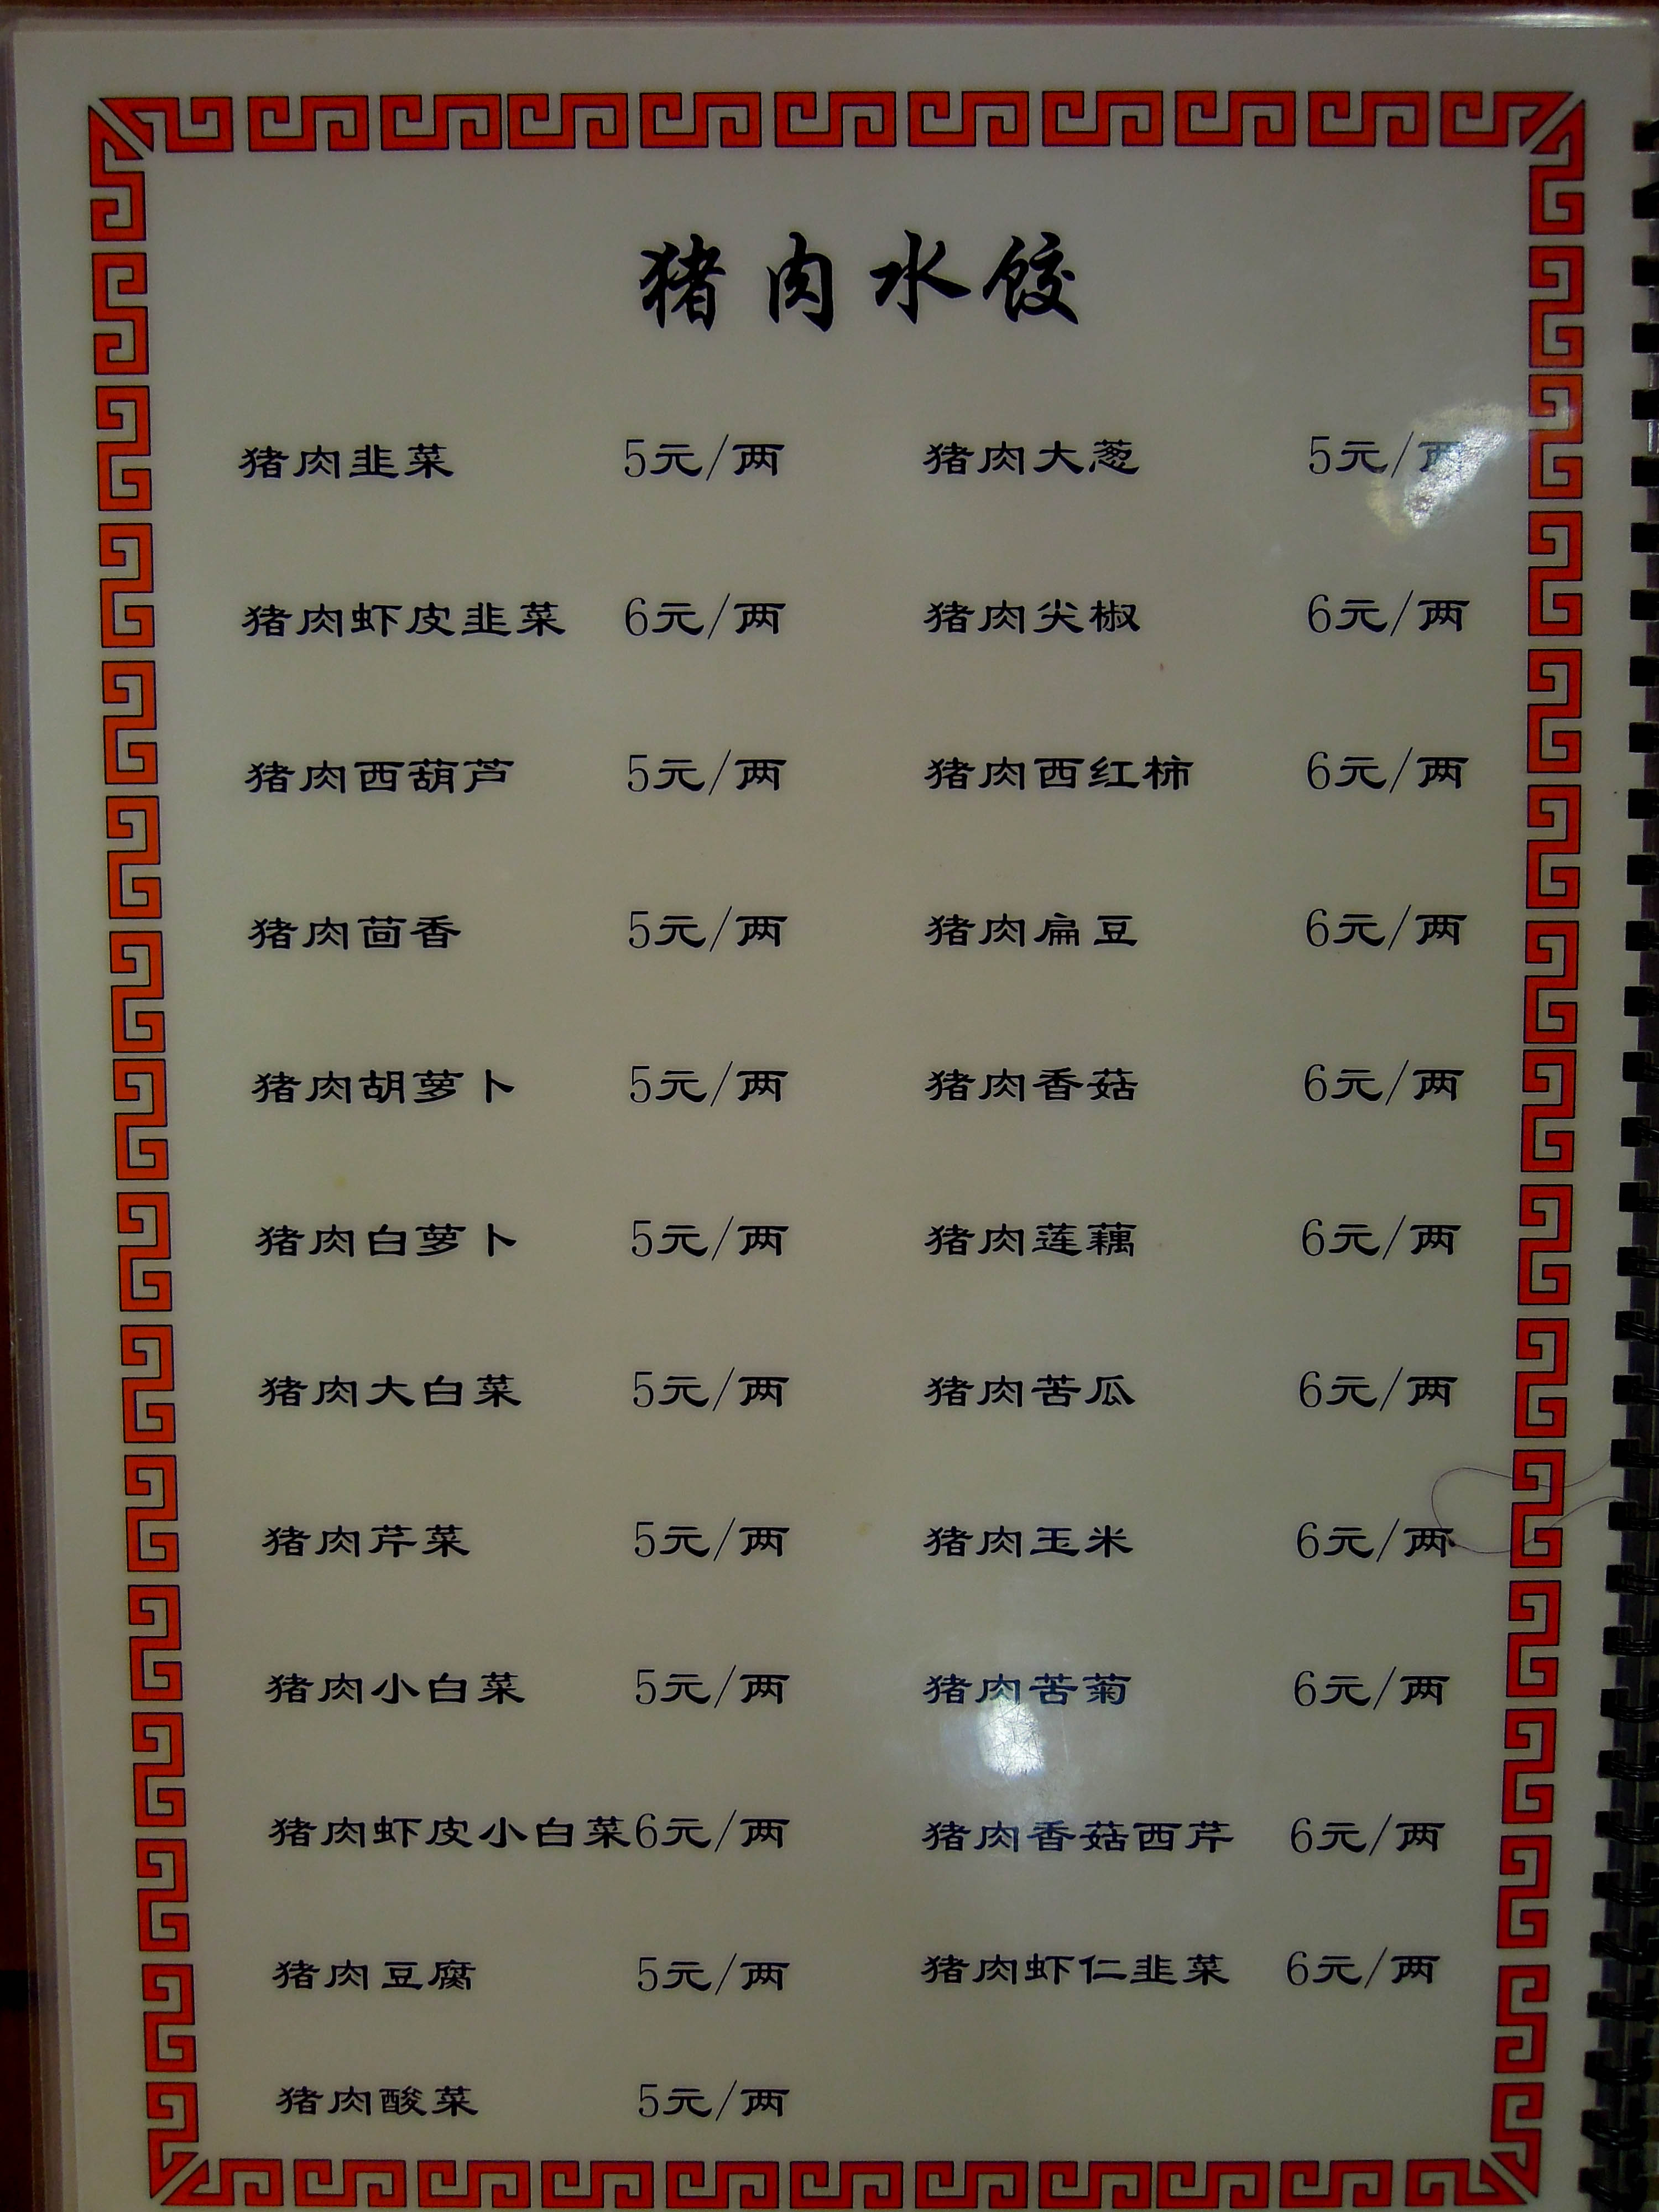 猪肉水饺
猪肉韭菜 5元/两 猪肉大葱 5元/两
猪肉虾皮韭菜 6元/两 猪肉尖椒 6元/两
猪肉西葫芦 5元/两 猪肉西红柿 6元/两
猪肉茴香 5元/两 猪肉扁豆 6元/两
猪肉胡萝卜 5元/两 猪肉香菇 6元/两
猪肉白萝卜 5元/两 猪肉莲藕 6元/两
猪肉大白菜 5元/两 猪肉苦瓜 6元/两
猪肉芹菜 5元/两 猪肉玉米 6元/两
猪肉小白菜 5元/两 猪肉苦菊 6元/两
猪肉虾皮小白菜6元/两 猪肉香菇西芹 6元/两
猪肉豆腐 5元/两 猪肉虾仁韭菜 6元/两
猪肉酸菜 5元/两